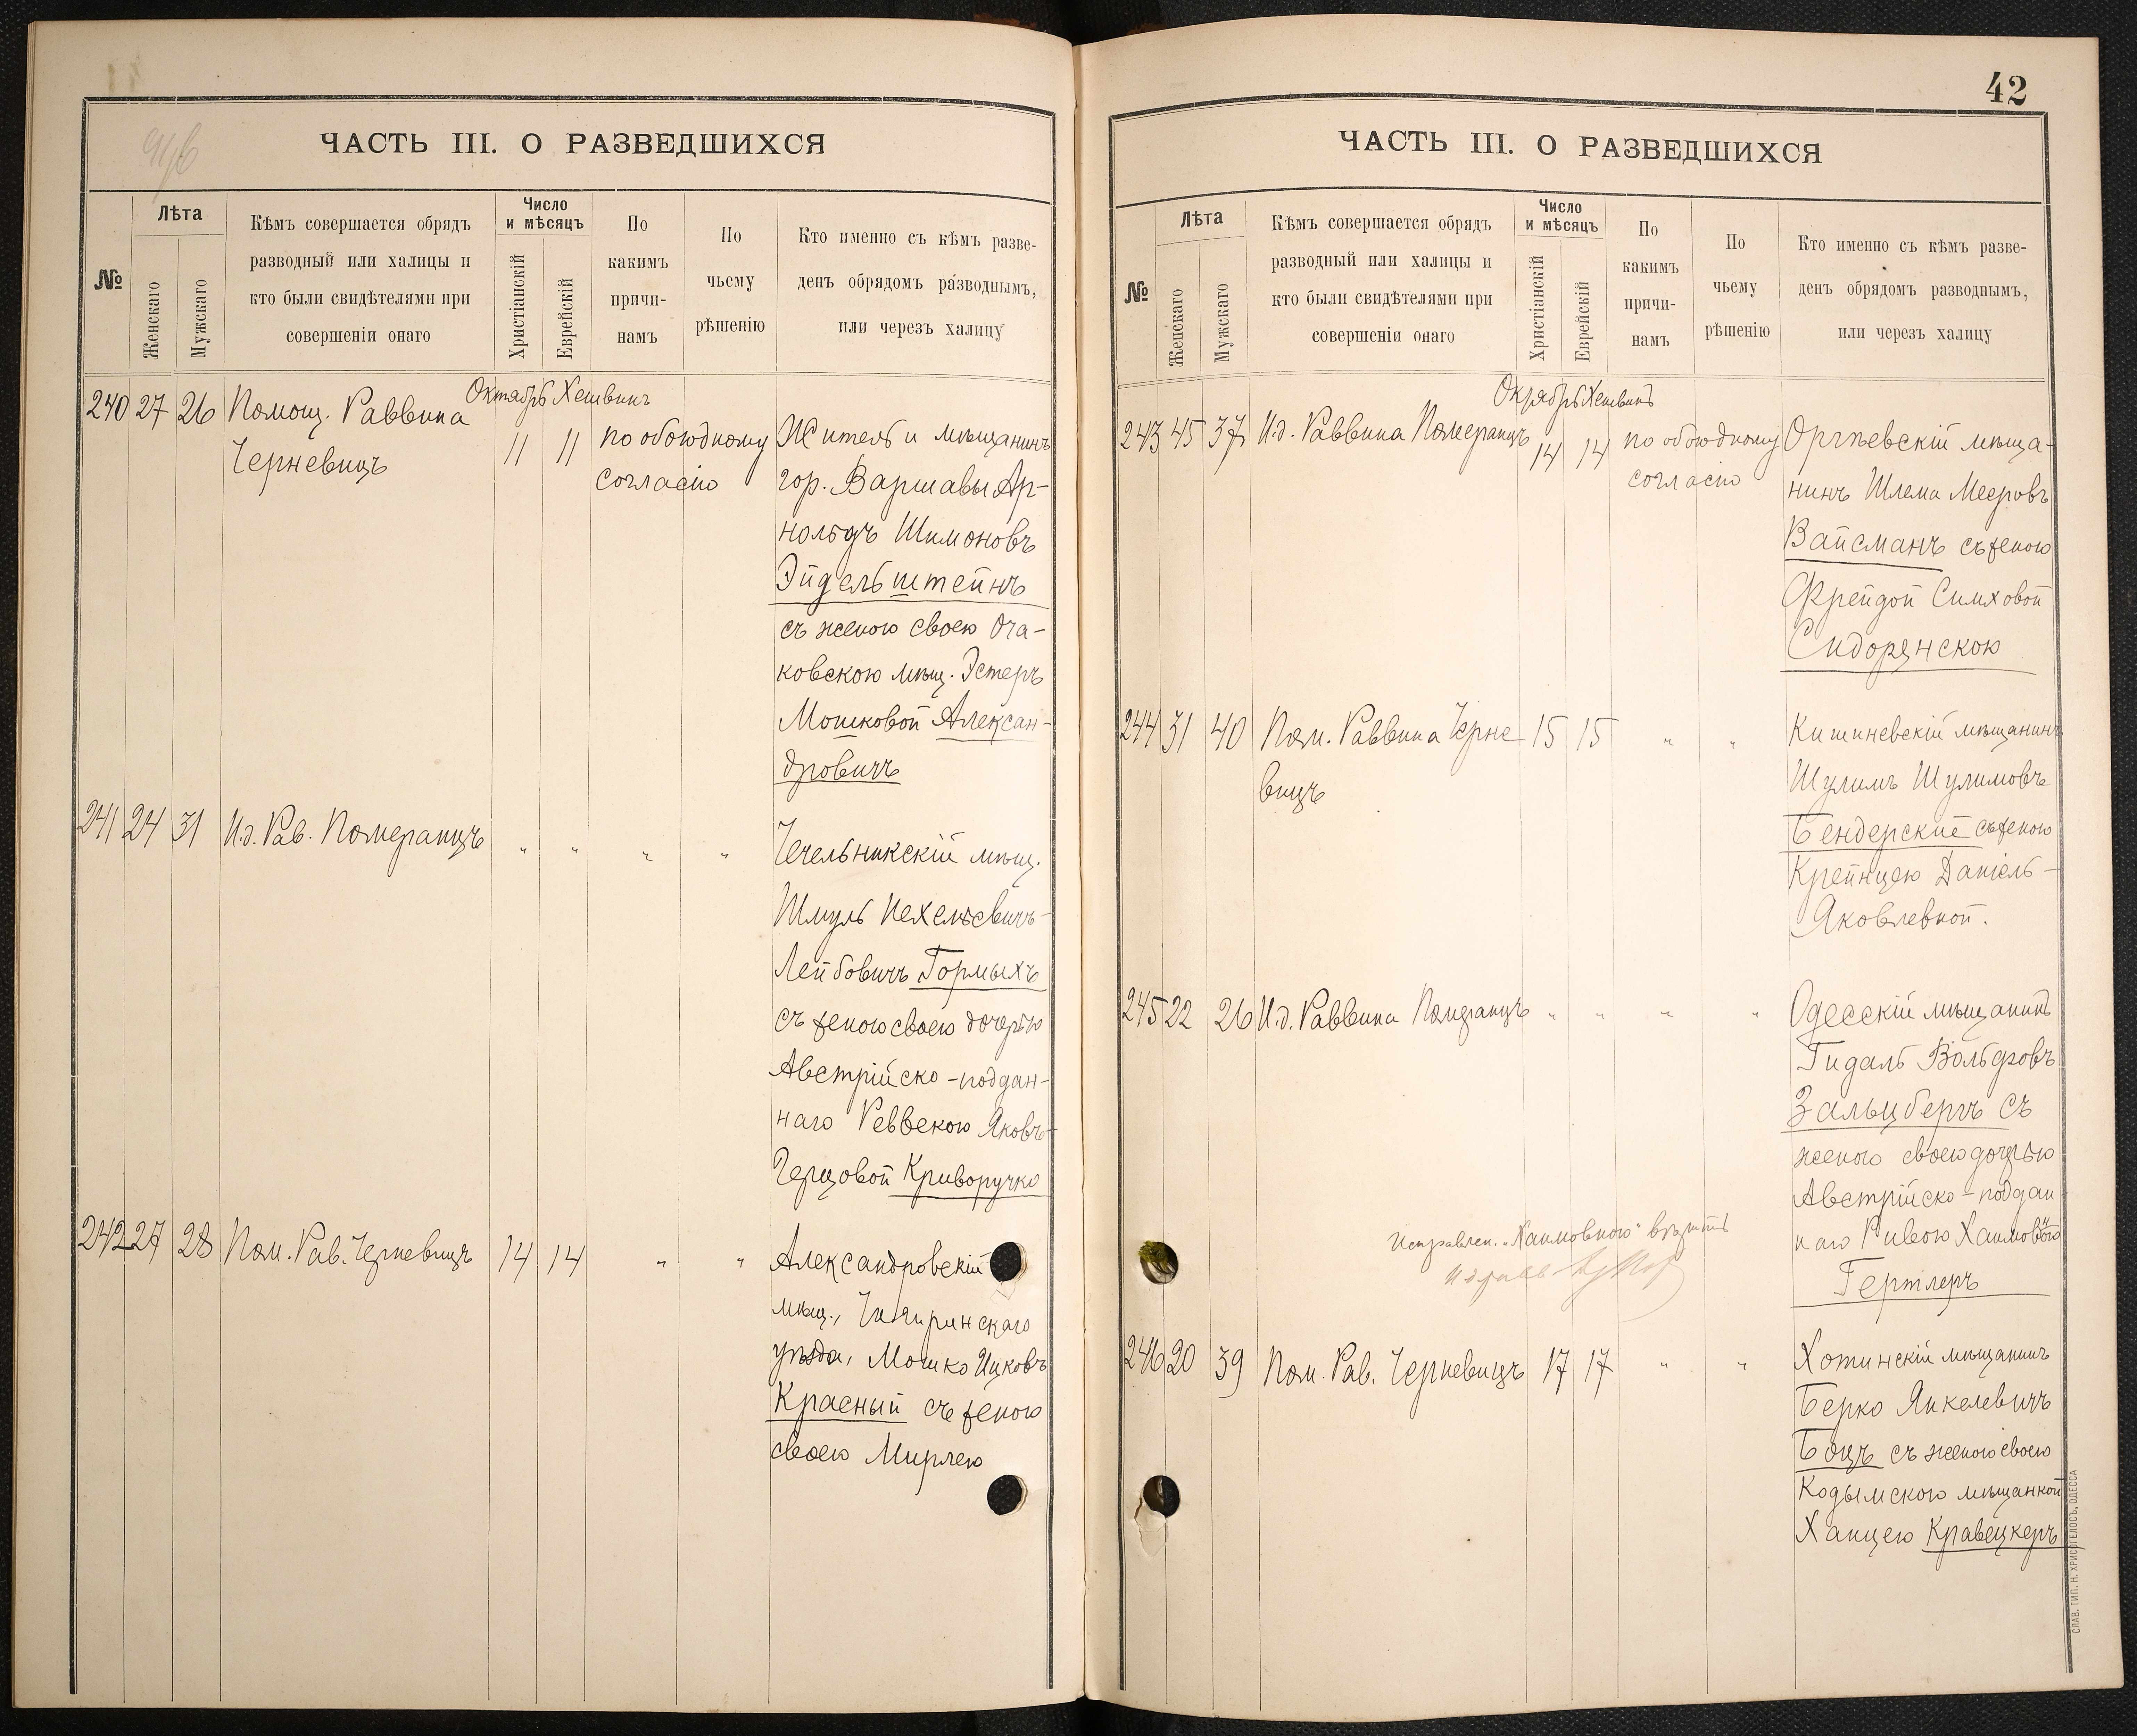 ЧАСТЬ III. О РАЗВЕДШИХСЯ
№
Лѣта
Женскаго
Мужскаго
Кѣмъ совершается обрядъ
разводный или халицы и
кто были свидѣтелями при
совершеніи онаго
Число
и мѣсяцъ
Христіанскій
Еврейскій
По
какимъ
причи-
намъ
По
чьему
рѣшенію
Кто именно съ кѣмъ разве-
денъ обрядомъ разводнымъ,
или черезъ халицу
Октябрь Хешвинъ
240 27 26 Помощ. Раввина
Черневицъ
11 11 по обоюдному
согласію
Житель и мѣщанинъ
гор. Варшавы Ар-
нольдъ Шимоновъ
Эйдельштейнъ
съ женою своею Оча-
ковскою мѣщ. Эстеръ
Мошковой Алексан-
дровичъ
241 24 31 И.д. Рав. Померанцъ " " " "
Чечельникскій мѣщ.
Шмуль Иехелѣевичъ-
Лейбовичъ Гормыхъ
съ женою своею дочерью
Австрійско-поддан-
наго Реввекою Яковъ-
Герцовой Криворучко
242 27 28 Пом. Рав. Черневицъ 14 14 " "
Александровскій
мѣщ., Чигиринскаго
уѣзда, Мошко Ицковъ
Красный съ женою
своею Мирлею
42
ЧАСТЬ III. О РАЗВЕДШИХСЯ
№
Лѣта
Женскаго
Мужскаго
Кѣмъ совершается обрядъ
разводный или халицы и
кто были свидѣтелями при
совершеніи онаго
Число
и мѣсяцъ
Христіанскій
Еврейскій
По
какимъ
причи-
намъ
По
чьему
рѣшенію
Кто именно съ кѣмъ разве-
денъ обрядомъ разводнымъ,
или черезъ халицу
Октябрь Хешвинъ
243 45 37 И.д. Раввина Померанцъ 14 14 по обоюдному
согласію
Оргѣевскій мѣща-
нинъ Шлема Мееровъ
Вайсманъ съ женою
Фрейдой Симховой
Сидорянскою
244 31 40 Пом. Раввина Черне
вицъ
15 15 " "
Кишиневскій мѣщанинъ
Шулимъ Шулимовъ
Бендерскій съ женою
Крейнцею Даніель-
Яковлевной.
245 22 26 И.д. Раввина Померанцъ " " " "
Одесскій мѣщанинъ
Гидаль Вольфовъ
Зальцбергъ съ
женою своею дочерью
Австрійско-поддан-
наго Ривою Хаимовною
Гертлеръ
Исправлен. "Хаимовною" вѣрить
246 20 39 Пом. Рав. Черневицъ 17 17 " "
Хотинскій мѣщанинъ
Берко Янкелевичъ
Боцъ съ женою своею
Кодымскою мѣщанкой
Ханцею Кравецкеръ
СЛАВ. ТИП. Н. ХРИСОГЕЛОСЪ, ОДЕССА